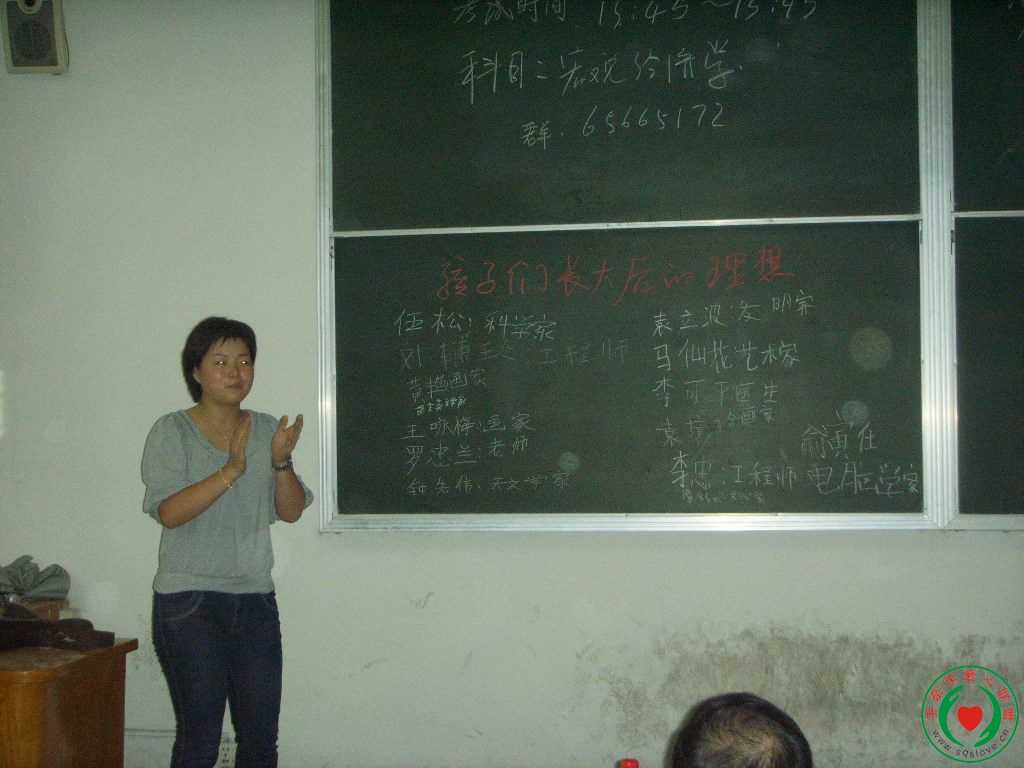 考试时间: 13:45～15:45
科目: 宏观经济学
群: 65665172
孩子们长大后的理想
伍松: 科学家
袁立波: 发明家
工程师
马仙花 艺术家
画家
李可平 医生
王咏梅: 画家
画家
罗忠兰: 老师
李忠: 工程师
电脑学家
天文学家
手牵手爱心联盟
www.sqslove.cn